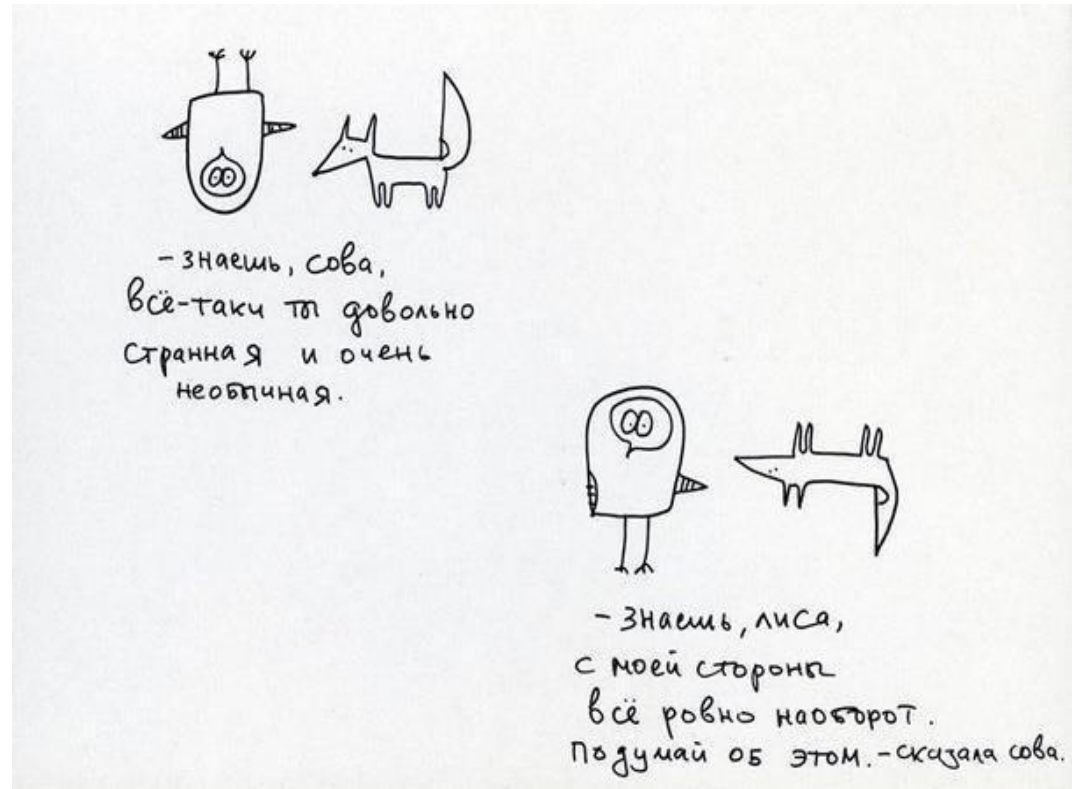 - знаешь, сова,
всё-таки ты довольно
странная и очень
необычная.
- знаешь, лиса,
с моей стороны
всё ровно наоборот.
Подумай об этом. - сказала сова.